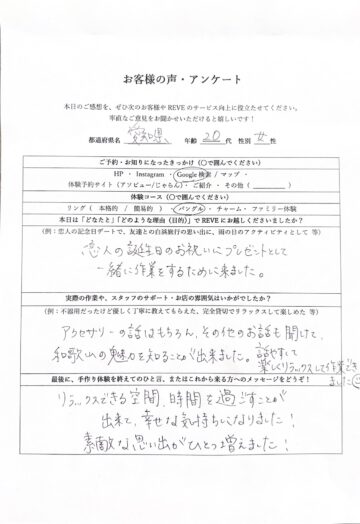 お客様の声・アンケート
本日のご感想を、ぜひ次のお客様やREVEのサービス向上に役立たせてください。
率直なご意見をお聞かせいただけると嬉しいです！
都道府県名 愛知県 年齢 20 代 性別 女性
ご予約・お知りになったきっかけ（〇で囲んでください）
HP ・ Instagram ・ Google検索 / マップ ・
体験予約サイト（アソビュー/じゃらん）・ご紹介 ・ その他（ ）
体験コース（〇で囲んでください）
リング（ 本格的 / 簡易的 ）・ バングル ・ チャーム ・ ファミリー体験
本日は「どなたと」「どのような理由（目的）」でREVEにお越しくださいましたか？
（例：恋人の記念日デートで、友達との白浜旅行の思い出に、雨の日のアクティビティとして 等）
恋人の誕生日のお祝いにプレゼントとして
一緒に作業をするために来ました。
実際の作業や、スタッフのサポート・お店の雰囲気はいかがでしたか？
（例：不器用だったけど優しく丁寧に教えてもらえた、完全貸切でリラックスして楽しめた 等）
アクセサリーの話はもちろん、その他のお話も聞けて、
和歌山の魅力を知ることが出来ました。話やすくて
楽しくリラックスして作業でき
ました
最後に、手作り体験を終えてのひと言、またはこれから来る方へのメッセージをどうぞ！
リラックスできる空間、時間を過ごすことが
出来て、幸せな気持ちになりました！
素敵な思い出がひとつ増えました！